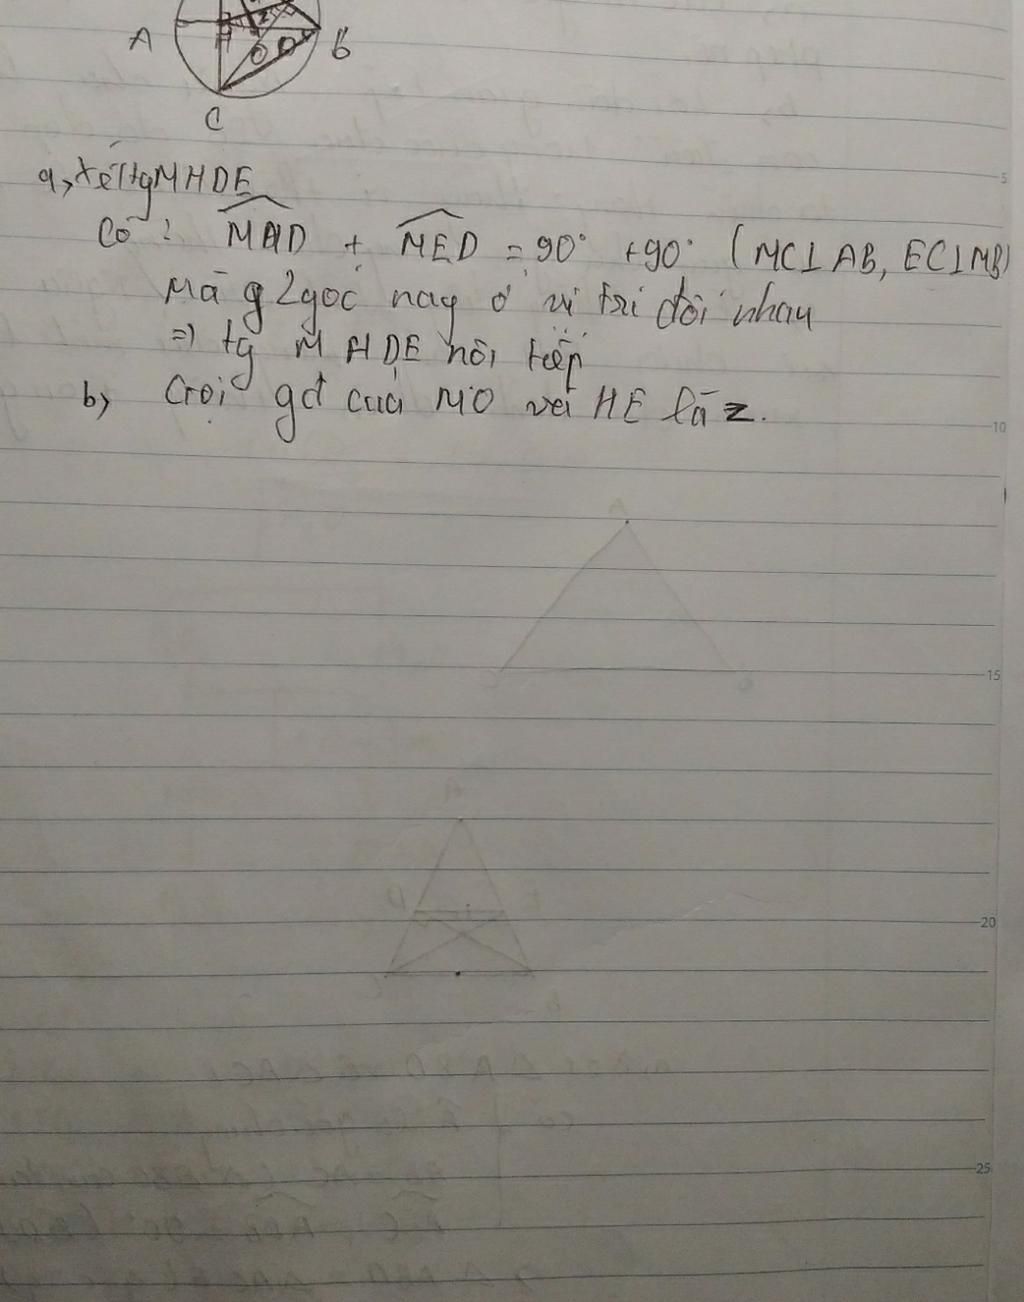 A
B
C
a, xét tg MHDE
Có: MHD + MED = 90° + 90° (MC⊥AB, EC⊥MB)
Mà 2 góc nay ở vị trí đối nhau
=> tg MHDE nội tiếp
b, Gọi gđ của MO với HE là Z.
5
10
15
20
25